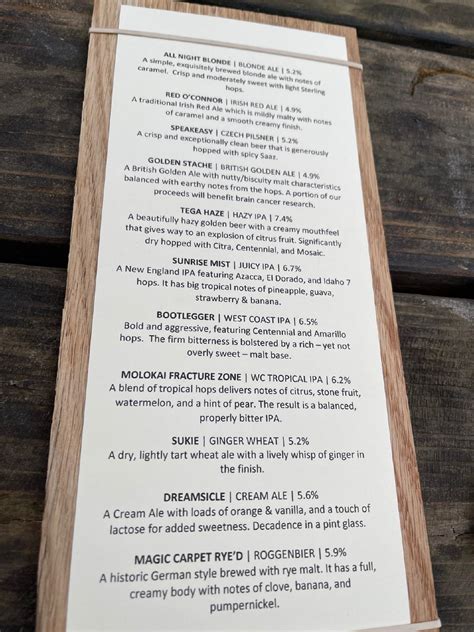 ALL NIGHT BLONDE | BLONDE ALE | 5.2%
A simple, exquisitely brewed blonde ale with notes of
caramel. Crisp and moderately sweet with light Sterling
hops.
RED O'CONNOR | IRISH RED ALE | 4.9%
A traditional Irish Red Ale which is mildly malty with notes
of caramel and a smooth creamy finish.
SPEAKEASY | CZECH PILSNER | 5.2%
A crisp and exceptionally clean beer that is generously
hopped with spicy Saaz.
GOLDEN STACHE | BRITISH GOLDEN ALE | 4.9%
A British Golden Ale with nutty/biscuity malt characteristics
balanced with earthy notes from the hops. A portion of our
proceeds will benefit brain cancer research.
TEGA HAZE | HAZY IPA | 7.4%
A beautifully hazy golden beer with a creamy mouthfeel
that gives way to an explosion of citrus fruit. Significantly
dry hopped with Citra, Centennial, and Mosaic.
SUNRISE MIST | JUICY IPA | 6.7%
A New England IPA featuring Azacca, El Dorado, and Idaho 7
hops. It has big tropical notes of pineapple, guava,
strawberry & banana.
BOOTLEGGER | WEST COAST IPA | 6.5%
Bold and aggressive, featuring Centennial and Amarillo
hops. The firm bitterness is bolstered by a rich – yet not
overly sweet – malt base.
MOLOKAI FRACTURE ZONE | WC TROPICAL IPA | 6.2%
A blend of tropical hops delivers notes of citrus, stone fruit,
watermelon, and a hint of pear. The result is a balanced,
properly bitter IPA.
SUKIE | GINGER WHEAT | 5.2%
A dry, lightly tart wheat ale with a lively whisp of ginger in
the finish.
DREAMSICLE | CREAM ALE | 5.6%
A Cream Ale with loads of orange & vanilla, and a touch of
lactose for added sweetness. Decadence in a pint glass.
MAGIC CARPET RYE'D | ROGGENBIER | 5.9%
A historic German style brewed with rye malt. It has a full,
creamy body with notes of clove, banana, and
pumpernickel.